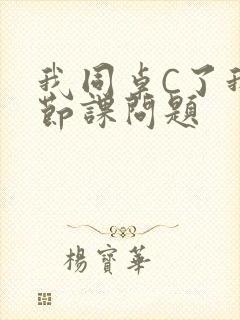 我同卓C了我
節課問題
楊寶華